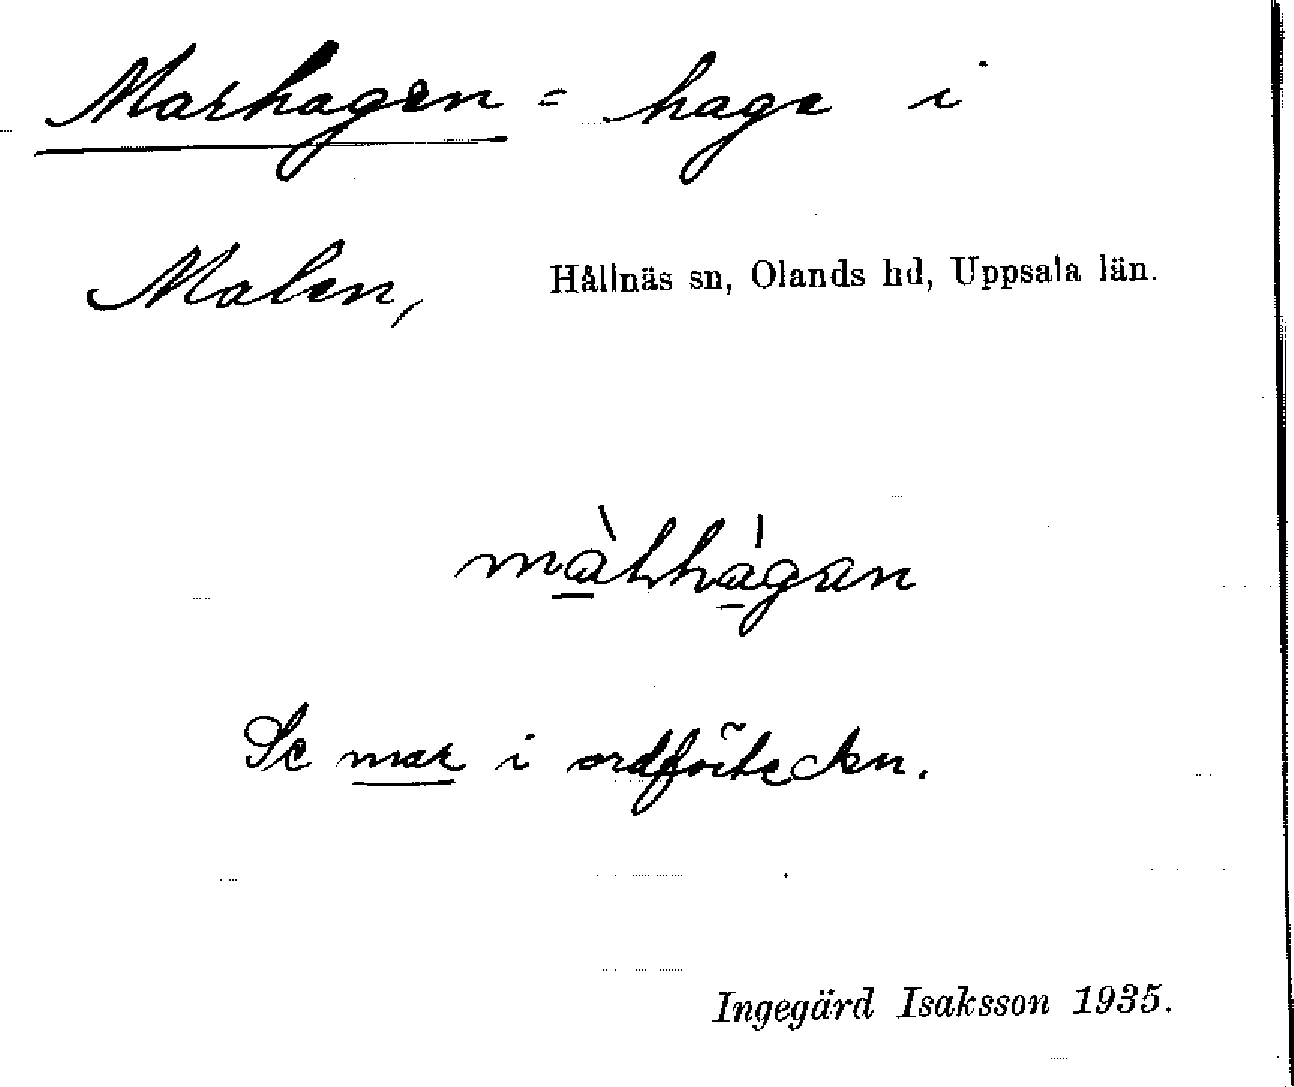 Marhagen = hage i
Malen, Hållnäs sn, Olands hd, Uppsala län.
màrhàgan
Se mar i ordförteckn.
Ingegärd Isaksson 1935.